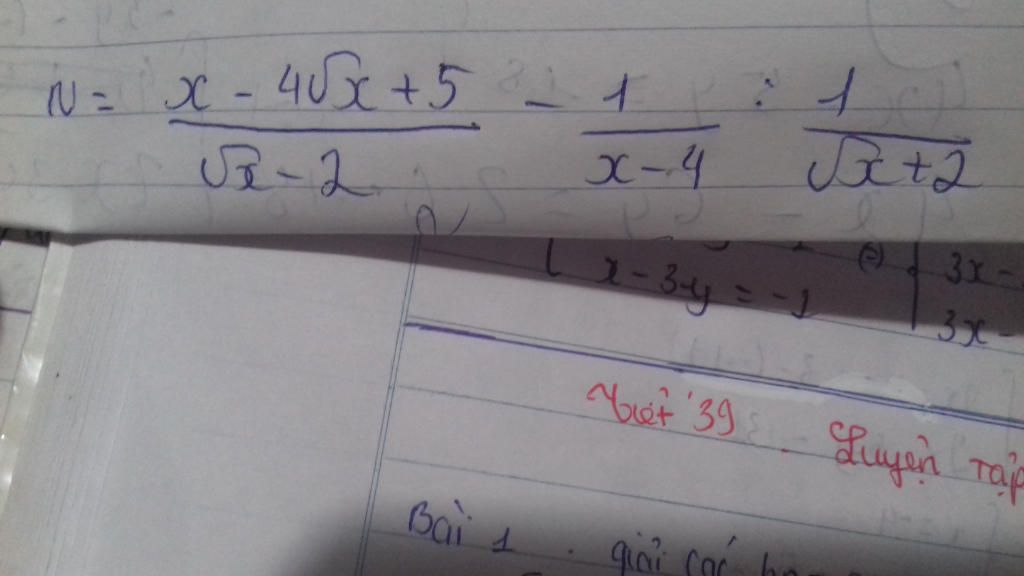 N = x - 4√x + 5 / √x - 2 - 1 / x - 4 : 1 / √x + 2
x - 3y = -1
3x -
3x -
Tiết 39. Luyện tập
Bài 1. giải các